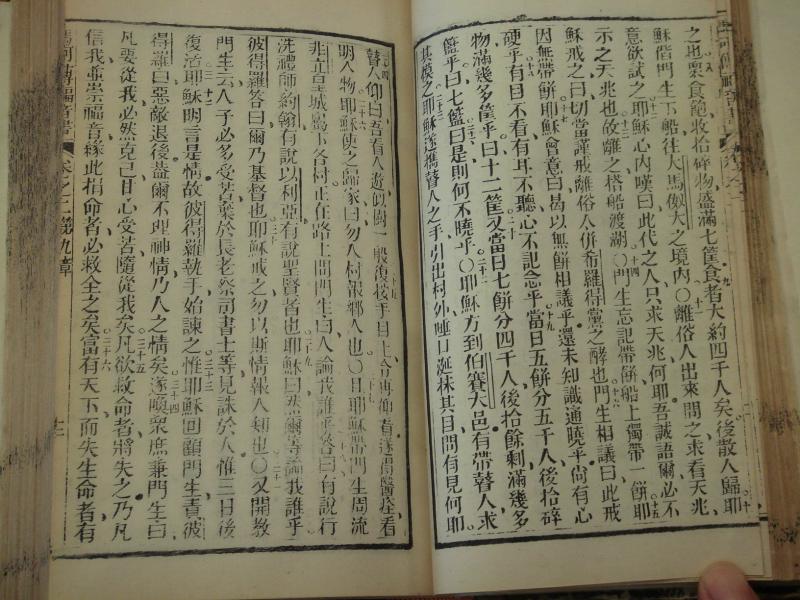 之也眾食飽收拾碎物盛滿七筐食者大約四千人矣後散人歸耶
穌偕門生下船往大馬㑢大之境內〇離俗人出來問之求看天兆
意欲試之耶穌心內嘆曰此代之人只求天兆何耶吾誠語爾必不
示之天兆也故離之搭船渡湖〇門生忘記帶餅船上獨帶一餅耶
穌戒之曰切當謹戒離俗人併希羅得黨之酵也門生相議曰此戒
因無帶餅耶穌會意曰曷以無餅相議乎還未知識通曉乎尚有心
硬乎有目不看有耳不聽心不記念乎當日五餅分五千人後拾碎
物滿幾多筐乎曰十二筐又當日七餅分四千人後拾餘剩滿幾多
籃乎曰七籃曰是則何不曉乎〇耶穌方到伯賽大邑有帶瞽人求
其模之耶穌遂攜瞽人之手引出村外唾口涎抹其目問有見何耶
瞽人仰曰吾看人遊似樹一般復按手目上令再仰看遂得醫痊看
明人物耶穌使之歸家曰勿入村報鄉人也〇且耶穌帶門生周流
非立車城島下各村正在路上問門生曰人論我誰乎答曰有說行
洗禮師約翰有說以利亞有說聖賢者也耶穌曰然爾等論我誰乎
彼得羅答曰爾乃基督也耶穌戒之勿以斯情報人知也〇又開教
門生云人子必多受苦棄於長老祭司書士等見誅於人惟三日後
復活耶穌明言是情故彼得羅執手始諫之惟耶穌回顧門生責彼
得羅曰惡敵退後蓋爾不理神情乃人之情矣遂喚眾庶兼門生曰
凡要從我必然克己甘心受苦隨從我矣凡欲救命者將失之乃凡
信我並崇福音緣此捐命者必救全之矣富有天下而失生命者有